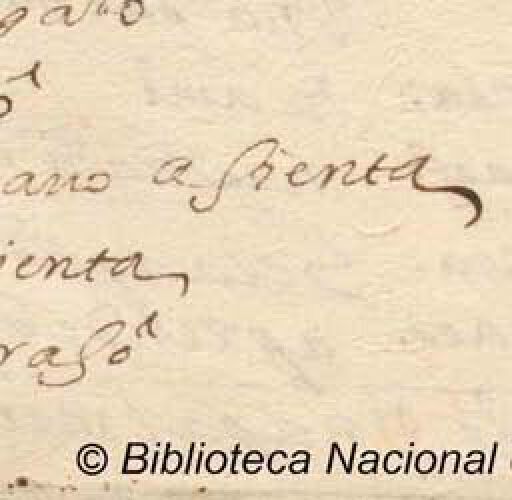 o^l
ano asienta
ienta
raso^l
© Biblioteca Nacional